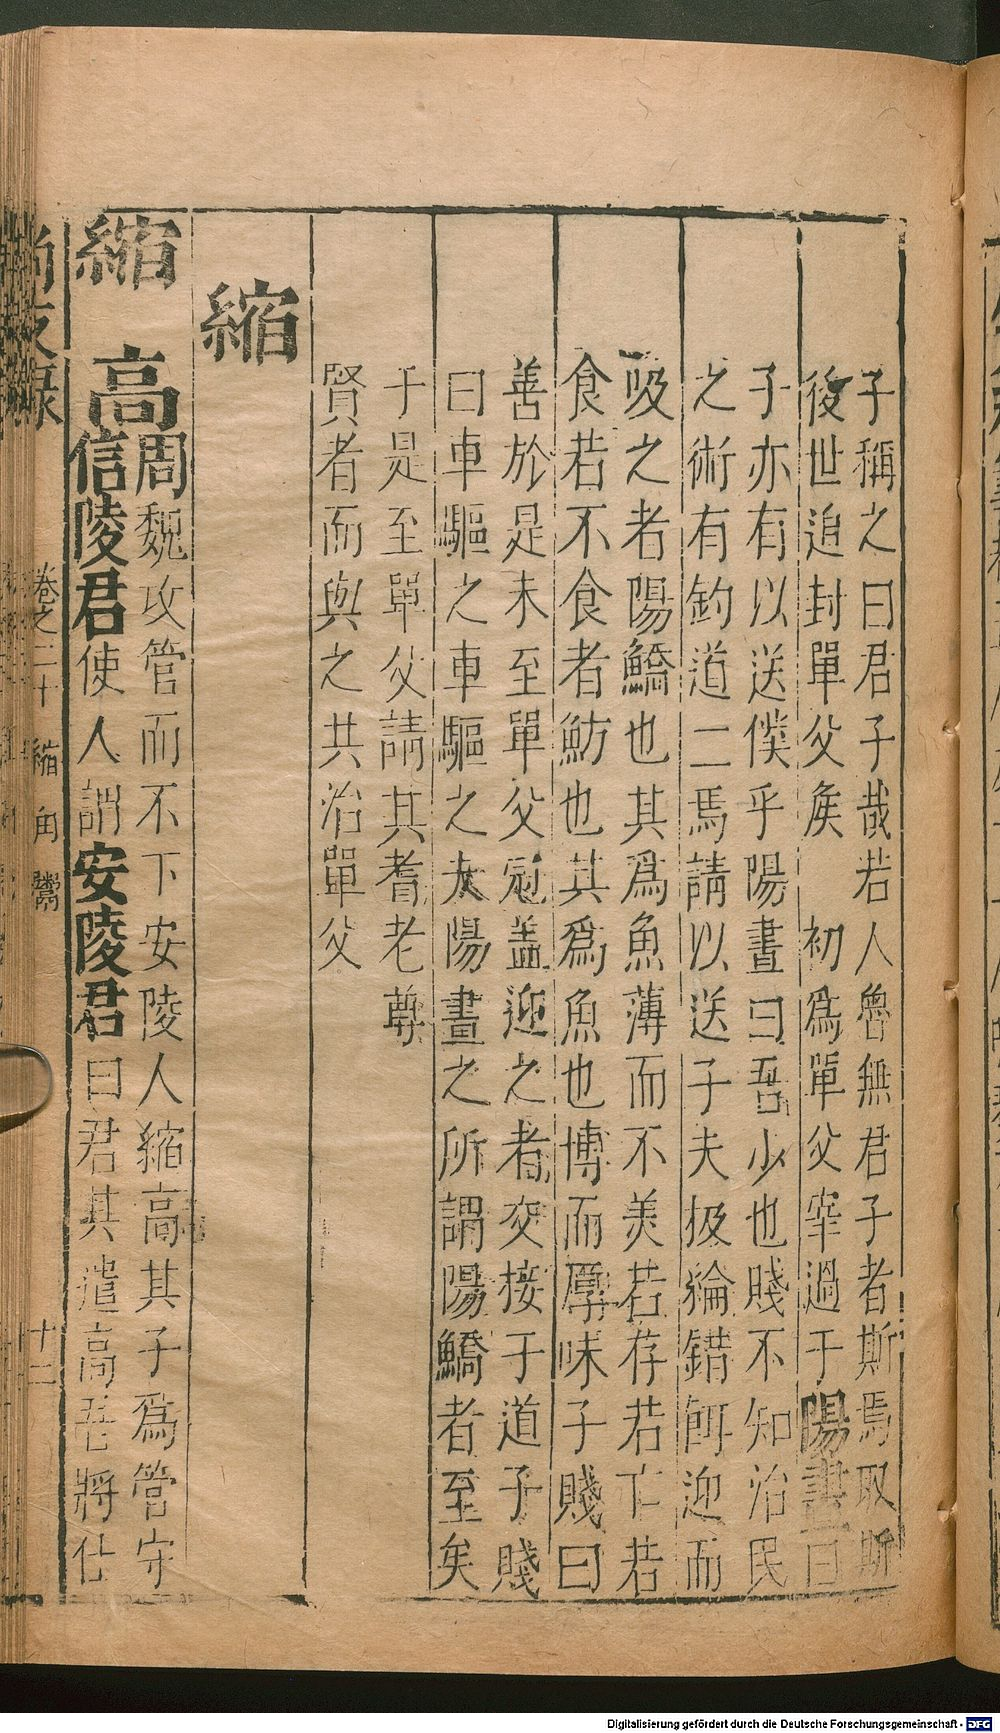 子稱之曰君子哉若人魯無君子者斯焉取斯
後世追封單父矦　初爲單父宰過于陽晝曰
子亦有以送僕乎陽晝曰吾少也賤不知治民
之術有釣道二焉請以送子夫扱綸錯餌迎而
吸之者陽鱎也其爲魚薄而不美若存若亡若
食若不食者魴也其爲魚也博而厚味子賤曰
善於是未至單父冠盖迎之者交接于道子賤
曰車驅之車驅之夫陽晝之所謂陽鱎者至矣
于是至單父請其耆老尊
賢者而與之共治單父
縮
縮　高周魏攻管而不下安陵人縮高其子爲管守
信陵君使人謂安陵君曰君其遣高吾將仕
尚友録　卷之二十　縮　角　鬻　十二
Digitalisierung gefördert durch die Deutsche Forschungsgemeinschaft - DFG